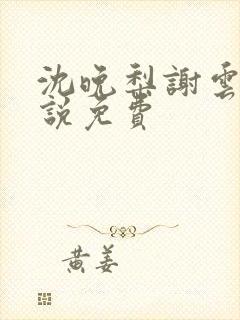 沈晚梨謝雲
說免費
黄姜